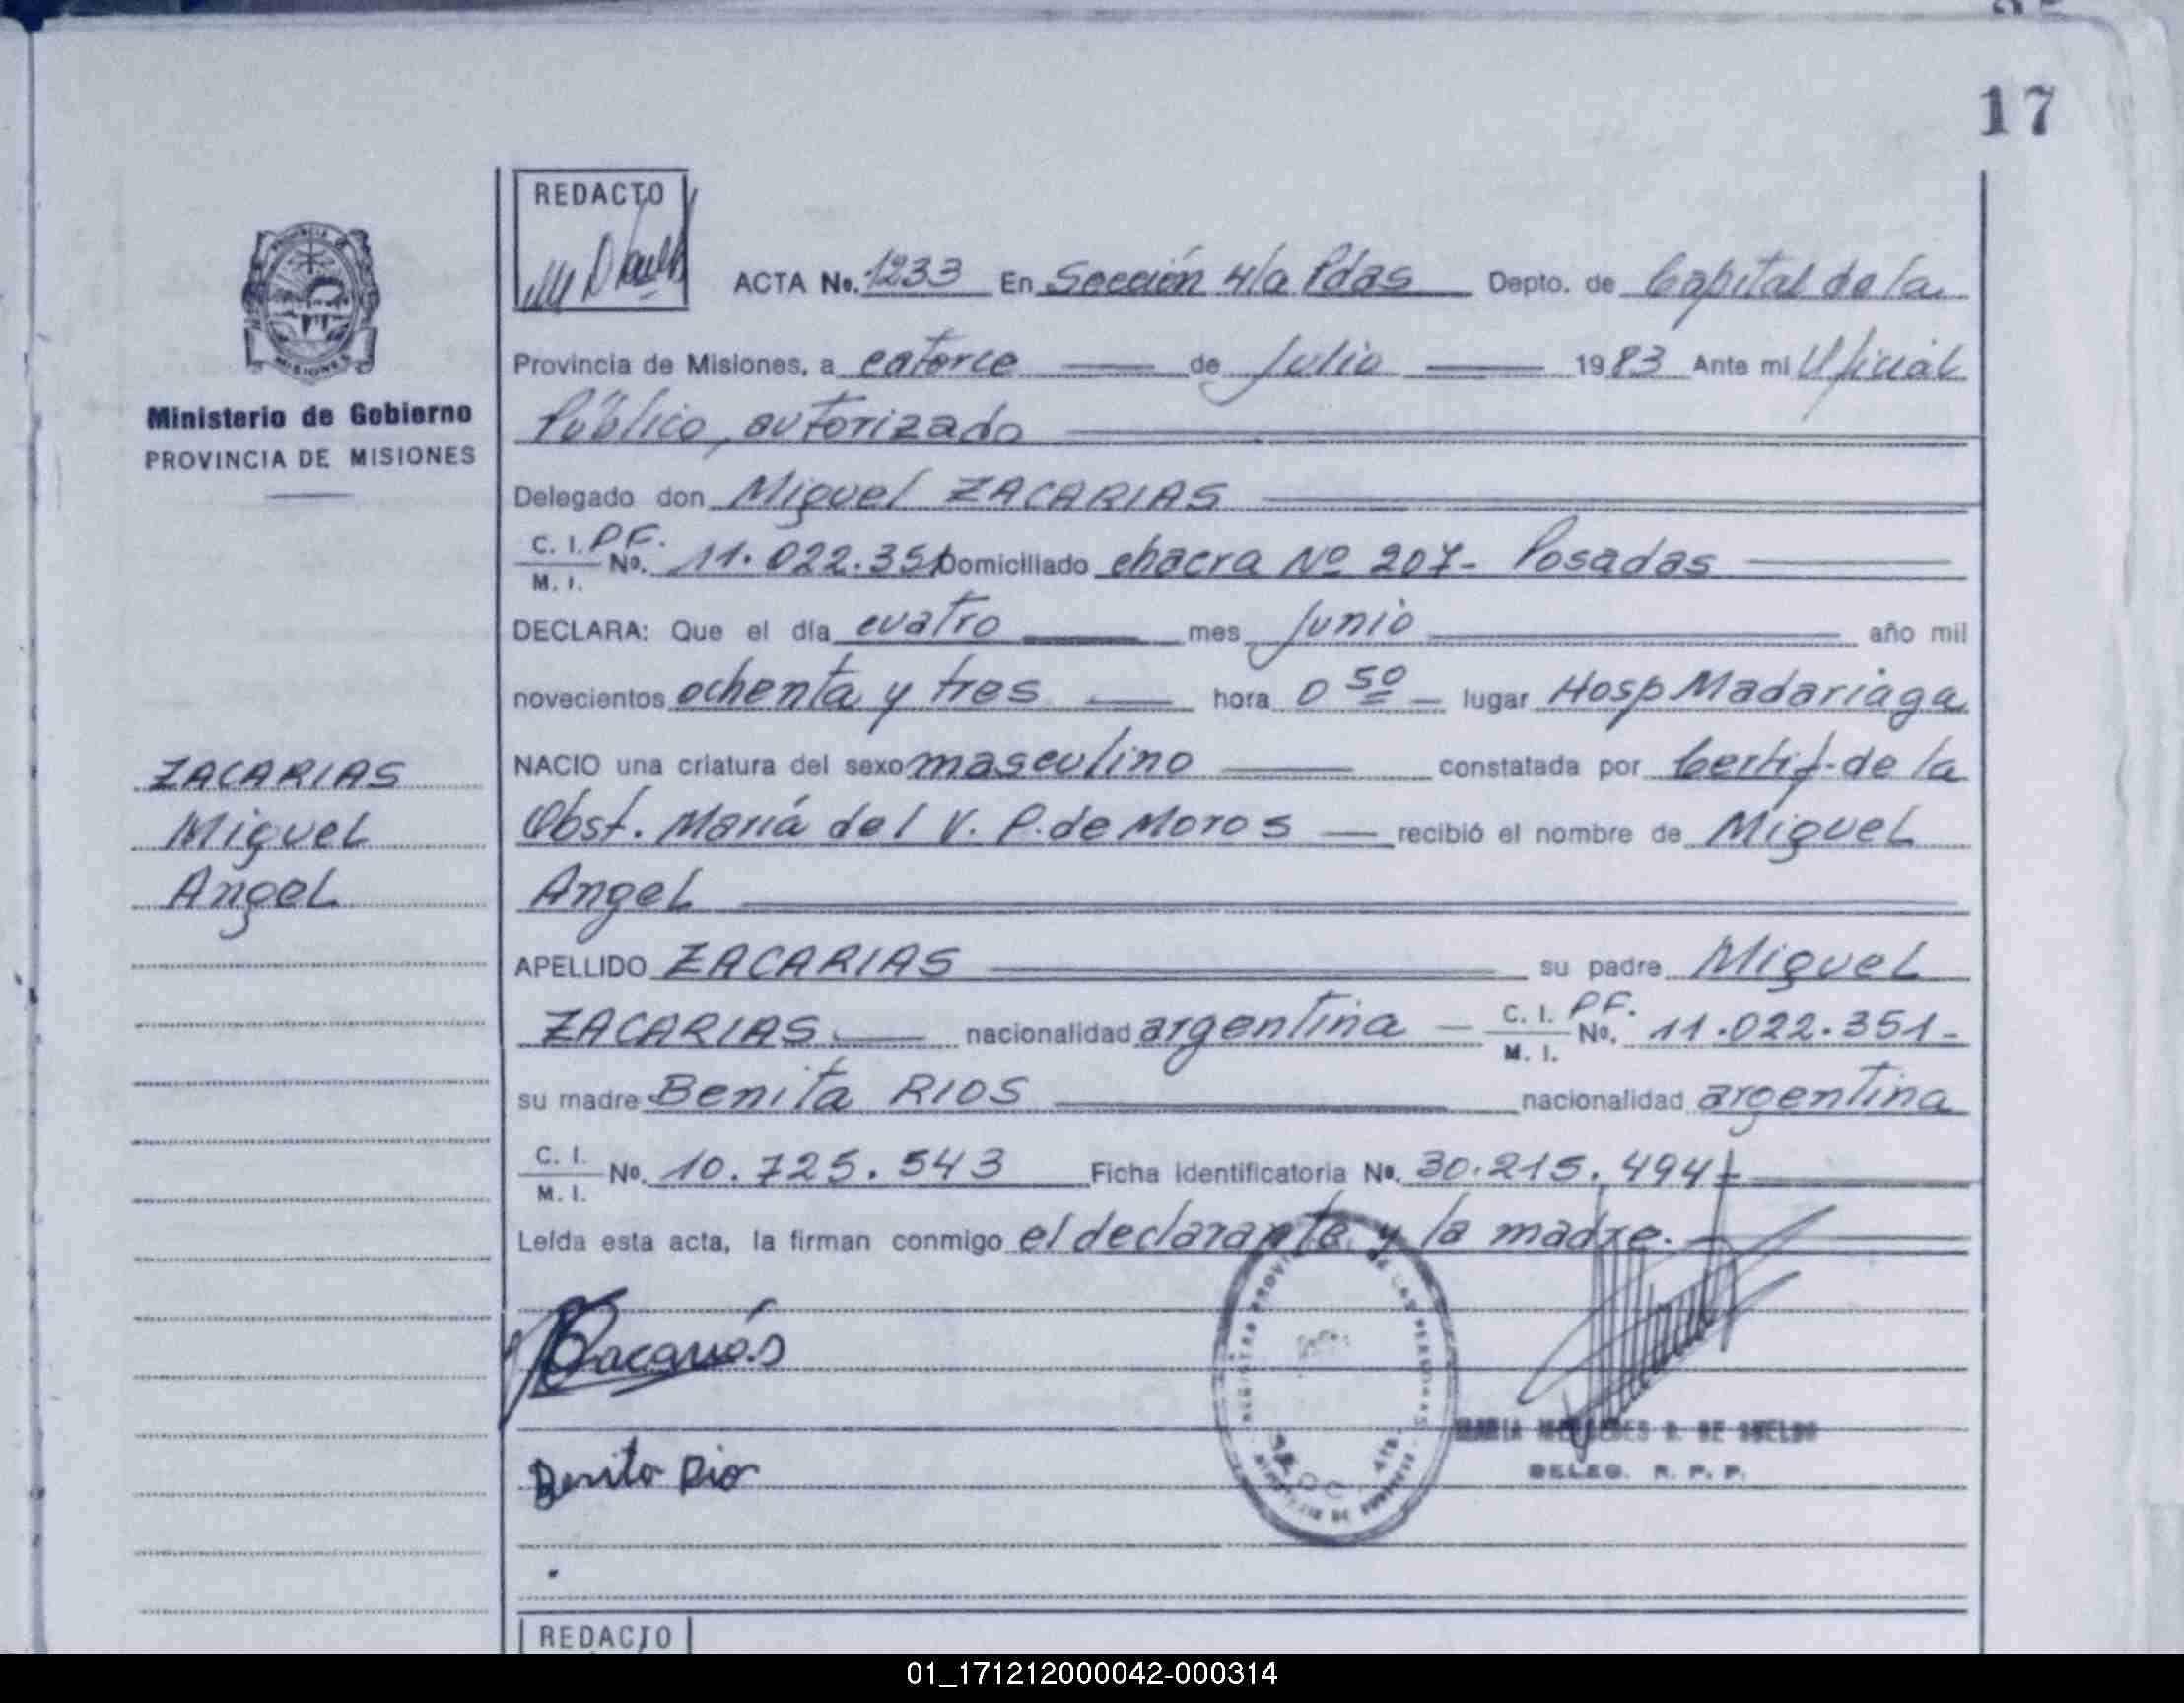 17
REDACTO
ACTA No. 1233 En Sección 4/a Pdas Depto. de Capital de la
Provincia de Misiones, a catorce de Julio 1983 Ante mi Oficial
Público, autorizado
Ministerio de Gobierno
PROVINCIA DE MISIONES
Delegado don Miguel ZACARIAS
C. I. PF. No. 11.022.351 Domiciliado chacra Nº 207- Posadas
M. I.
DECLARA: Que el día cuatro mes Junio año mil
novecientos ochenta y tres hora 0 50 lugar Hosp Madariaga
NACIO una criatura del sexo masculino constatada por Certif. de la
Obst. María del V. P. de Moros recibió el nombre de Miguel
Angel
ZACARIAS
Miguel
Angel
APELLIDO ZACARIAS su padre Miguel
ZACARIAS nacionalidad argentina C. I. PF. No. 11.022.351-
M. I.
su madre Benita RIOS nacionalidad argentina
C. I. No. 10.725.543 Ficha identificatoria No. 30.215.494-
M. I.
Leída esta acta, la firman conmigo el declarante y la madre.
Zacarias
Benita Rio
DELEG. R. P. P.
REDACTO
01_171212000042-000314